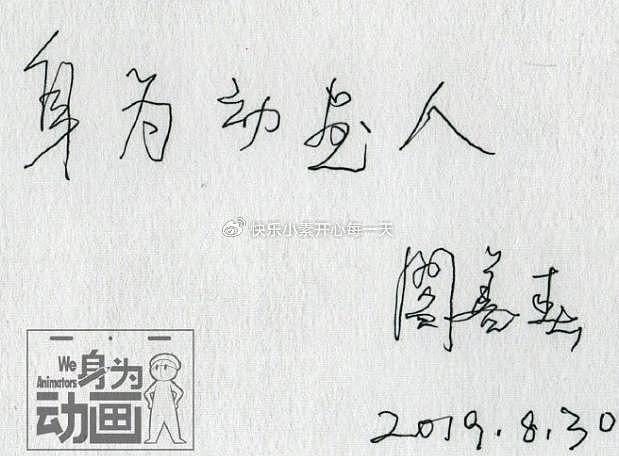 身为动画人
快乐小素开心每一天
阎善春
We
Animators
身为
动画
2019.8.30